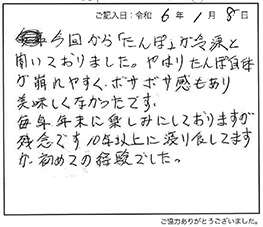 ご記入日：令和 6年 1月 8日
今回から「たんぽ」が冷凍と
聞いておりました。やはりたんぽ自体
が崩れやすく、ボサボサ感もあり
美味しくなかったです。
毎年年末に楽しみにしておりますが
残念です 10年以上に渡り食してます
が初めての経験でした。
ご協力ありがとうございました。